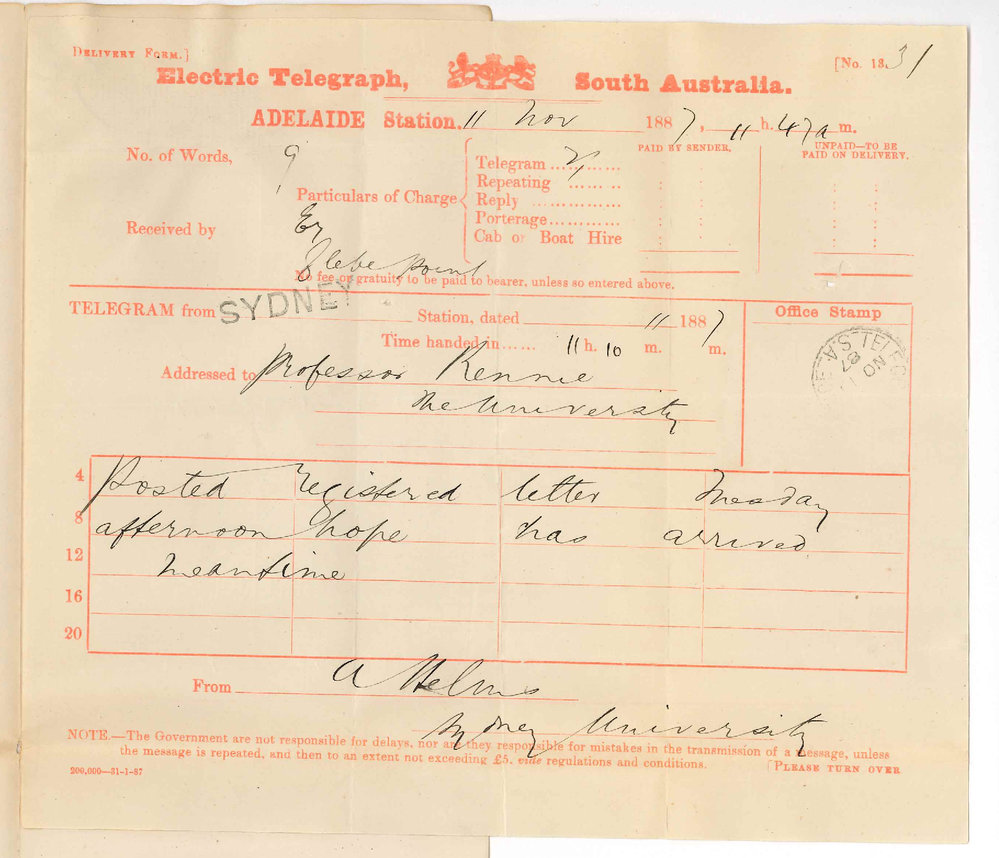 DELIVERY FORM.] [No. 13. 31
Electric Telegraph, South Australia.
ADELAIDE Station. 11 Nov 1887, 11 h. 47 a m.
No. of Words, 9
Particulars of Charge
PAID BY SENDER. UNPAID—TO BE PAID ON DELIVERY.
Telegram ............
Repeating ...... ..
Reply ...............
Porterage............
Cab or Boat Hire
Received by
Glebe Point
No fee or gratuity to be paid to bearer, unless so entered above.
TELEGRAM from SYDNEY Station, dated 11 1887
Time handed in...... 11 h. 10 m. m.
Office Stamp
Addressed to Professor Rennie
The University
4 Posted registered letter Tuesday
8 afternoon hope has arrived
12 meantime
16
20
From A Helms
Sydney University
NOTE.—The Government are not responsible for delays, nor are they responsible for mistakes in the transmission of a message, unless
the message is repeated, and then to an extent not exceeding £5. vide regulations and conditions. [PLEASE TURN OVER
200,000—31-1-87